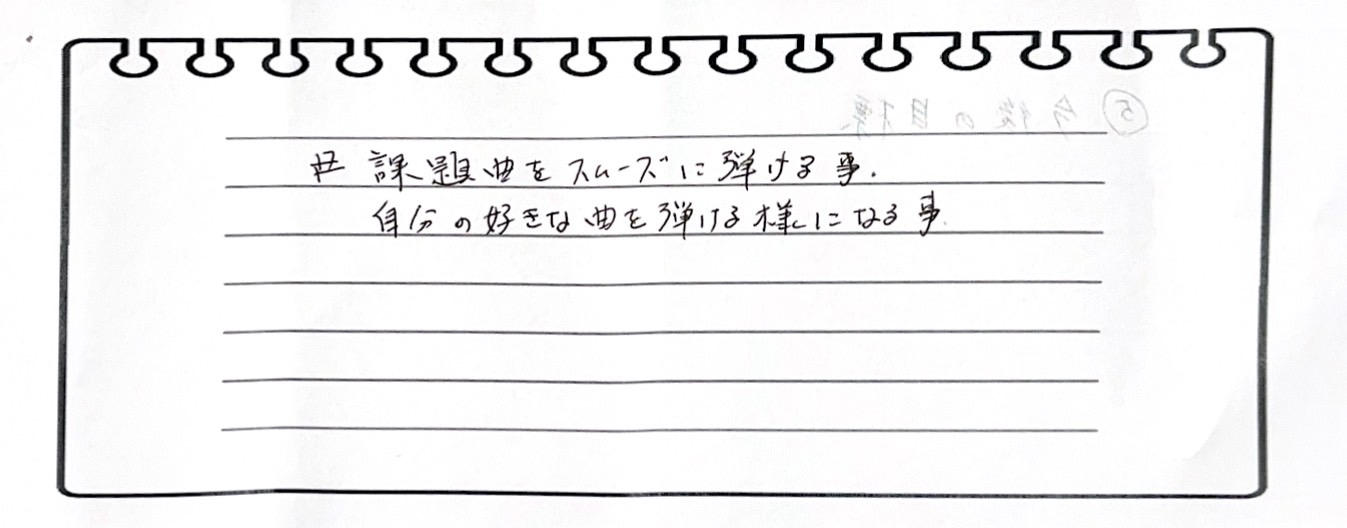 ⑤ 今後の目標
# 課題曲をスムーズに弾ける事.
自分の好きな曲を弾ける様になる事.